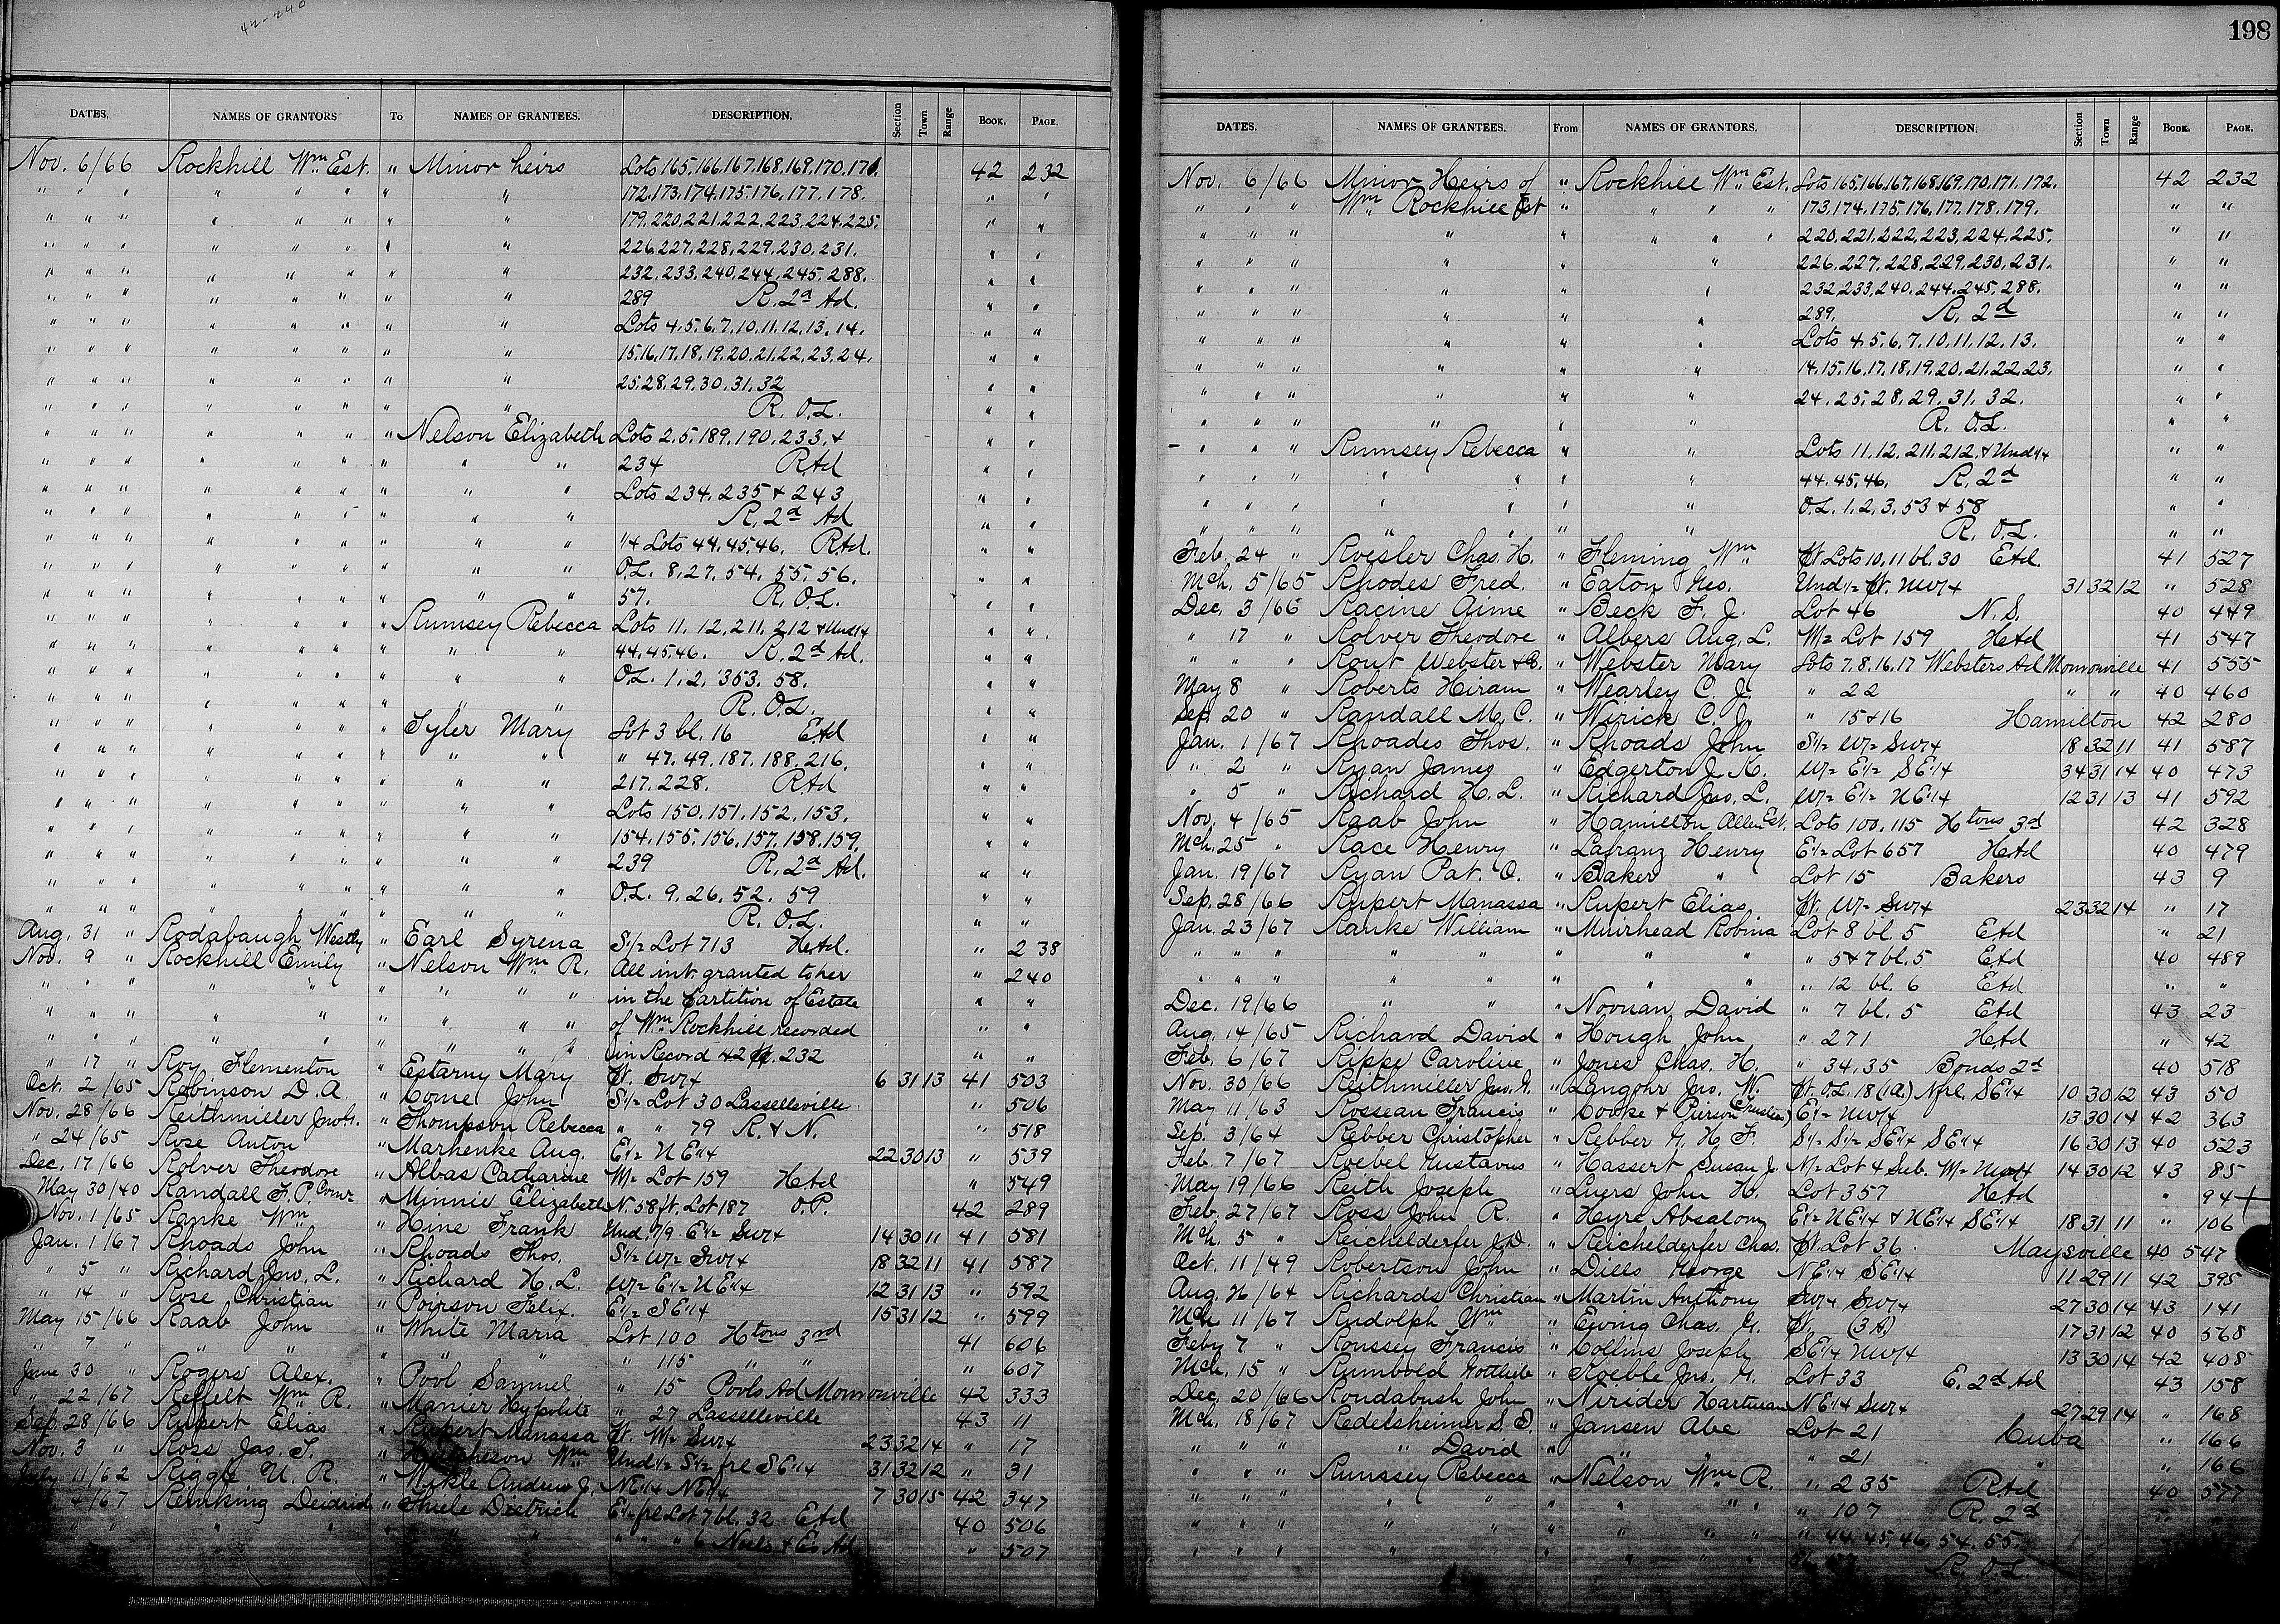 42-240
DATES. NAMES OF GRANTORS To NAMES OF GRANTEES. DESCRIPTION. Section Town Range BOOK. PAGE.
Nov. 6/66 Rockhill Wm Est. " Minor heirs Lots 165.166.167.168.169.170.171. 42 232
" " " " " " " " 172.173.174.175.176.177.178. " "
" " " " " " " " 179.220.221.222.223.224.225. " "
" " " " " " " " 226.227.228.229.230.231. " "
" " " " " " " " 232.233.240.244.245.288. " "
" " " " " " " " 289 R. 2d Ad. " "
" " " " " " " " Lots 4.5.6.7.10.11.12.13.14. " "
" " " " " " " " 15.16.17.18.19.20.21.22.23.24. " "
" " " " " " " " 25.28.29.30.31.32 " "
" " " " " " " " R. O.L. " "
" " " " " " " Nelson Elizabeth Lots 2.5.189.190.233.& " "
" " " " " " " " " 234 RAd " "
" " " " " " " " " Lots 234.235 & 243 " "
" " " " " " " " " R. 2d Ad " "
" " " " " " " " " 1/4 Lots 44.45.46. RAd. " "
" " " " " " " " " O.L. 8.27.54.55.56. " "
" " " " " " " " " 57. R. O.L. " "
" " " " " " " Rumsey Rebecca Lots 11.12.211.212 & Und 1/4 " "
" " " " " " " " " 44.45.46. R. 2d Ad. " "
" " " " " " " " " O.L. 1.2.353.58. " "
" " " " " " " " " R. O.L. " "
" " " " " " " Tyler Mary Lot 3 bl. 16 EAd " "
" " " " " " " " " " 47.49.187.188.216. " "
" " " " " " " " " 217.228. RAd " "
" " " " " " " " " Lots 150.151.152.153. " "
" " " " " " " " " 154.155.156.157.158.159. " "
" " " " " " " " " 239 R. 2d Ad. " "
" " " " " " " " " O.L. 9.26.52.59 " "
" " " " " " " " " R. O.L. " "
Aug. 31 " Rodabaugh Westly " Earl Syrena S 1/2 Lot 713 HAd. " 238
Nov. 9 " Rockhill Emily " Nelson Wm R. All int. granted to her " 240
" " " " " " " " " in the Partition of Estate " "
" " " " " " " " " of Wm Rockhill recorded " "
" " " " " " " " " in Record 42 P. 232 " "
" 17 " Roy Flementon " Estarny Mary Pt. SW 1/4 6 31 13 41 503
Oct. 2/65 Robinson D. A. " Come John S 1/2 Lot 30 Lasselleville " 506
Nov. 28/66 Reithmiller Jno. G. " Thompson Rebecca " " 79 R. & N. " 518
" 24/65 Rose Anton " Marhenke Aug. E 1/2 NE 1/4 22 30 13 " 539
Dec. 17/66 Rolver Theodore " Albas Catharine W 1/2 Lot 159 HAd " 549
May 30/40 Randall F. P. Comr " Minnie Elizabeth N. 58 ft. Lot 187 O.P. 42 289
Nov. 1/65 Ranke Wm " Hine Frank Und. 7/9 E 1/2 SW 1/4 14 30 11 41 581
Jan. 1/67 Rhoads John " Rhoads Thos. S 1/2 W 1/2 SW 1/4 18 32 11 41 587
" 5 " Richard Jno. L. " Richard H. L. W 1/2 E 1/2 NE 1/4 12 31 13 " 592
" 14 " Rose Christian " Poirson Felix. E 1/2 SE 1/4 15 31 12 " 599
May 15/66 Raab John " White Maria Lot 100 Htons 3rd 41 606
" 7 " " " " " " " 115 " " " 607
June 30 " Rogers Alex. " Pool Samuel " 15 Pools Ad Monroeville 42 333
" 22/67 Reffelt Wm R. " Manier Hypolite " 27 Lasselleville 43 11
Sep. 28/66 Rupert Elias " Rupert Manassa Pt. W 1/2 SW 1/4 23 32 14 " 17
Nov. 3 " Ross Jas. T. " Hutcheson Wm Und 1/2 S 1/2 frl SE 1/4 31 32 12 " 31
July 11/62 Riggle U. R. " Mickle Andrew J. NE 1/4 NE 1/4 7 30 15 42 347
4/67 Renking Deidrich " Thiele Dietrich E 1/2 frl Lot 7 bl. 32 EAd 40 506
" " " " " " 6 Ad " 507
198
DATES. NAMES OF GRANTEES. From NAMES OF GRANTORS. DESCRIPTION. Section Town Range BOOK. PAGE.
Nov. 6/66 Minor Heirs of " Rockhill Wm Est. Lots 165.166.167.168.169.170.171.172. 42 232
" " " Wm Rockhill Est " " " " 173.174.175.176.177.178.179. " "
" " " " " " " " 220.221.222.223.224.225. " "
" " " " " " 226.227.228.229.230.231. " "
" " " " " " 232.233.240.244.245.288. " "
" " " " " " 289. R. 2d " "
" " " " " " Lots 4.5.6.7.10.11.12.13. " "
" " " " " " 14.15.16.17.18.19.20.21.22.23. " "
" " " " " " 24.25.28.29.31.32. " "
" " " " " " R. O.L. " "
" " " Rumsey Rebecca " " Lots 11.12.211.212.& Und 1/4 " "
" " " " " " " 44.45.46. R. 2d " "
" " " " " " " O.L. 1.2.3.53 & 58 " "
" " " " " " " R. O.L. " "
Feb. 24 " Roesler Chas. H. " Fleming Wm Pt. Lots 10.11 bl. 30 EAd. 41 527
Mch. 5/65 Rhodes Fred. " Eaton Geo. Und 1/2 Pt. NW 1/4 31 32 12 " 528
Dec. 3/66 Racine Aime " Beck F. J. Lot 46 N. S. 40 449
" 17 " Rolver Theodore " Albers Aug. L. W 1/2 Lot 159 HAd 41 547
" " " Rout Webster & B. " Webster Mary Lots 7.8.16.17 Websters Ad Monroeville 41 555
May 8 " Roberts Hiram " Wearley C. J. " 22 " " 40 460
Sep. 20 " Randall M. C. " Wirick C. J. " 15 & 16 Hamilton 42 280
Jan. 1/67 Rhoades Thos. " Rhoads John S 1/2 W 1/2 SW 1/4 18 32 11 41 587
" 2 " Ryan James " Edgerton J. K. W 1/2 E 1/2 SE 1/4 34 31 14 40 473
" 5 " Richard H. L. " Richard Jno. L. W 1/2 E 1/2 NE 1/4 12 31 13 41 592
Nov. 4/65 Raab John " Hamilton Allen Est. Lots 100.115 Htons 3d 42 328
Mch. 25 " Race Henry " Lafranz Henry E 1/2 Lot 657 HAd 40 479
Jan. 19/67 Ryan Pat. O. " Baker " Lot 15 Bakers 43 9
Sep. 28/66 Rupert Manassa " Rupert Elias Pt. W 1/2 SW 1/4 23 32 14 " 17
Jan. 23/67 Ranke William " Muirhead Robina Lot 8 bl. 5 EAd " 21
" " " " " " " " " 5 & 7 bl. 5 EAd 40 489
" " " " " " " " " 12 bl. 6 EAd " "
Dec. 19/66 " " " Noonan David " 7 bl. 5 EAd 43 23
Aug. 14/65 Richard David " Hough John " 271 HAd " 42
Feb. 6/67 Rippe Caroline " Jones Chas. H. " 34.35 Bonds 2d 40 518
Nov. 30/66 Reithmiller Jno. G. " Langohr Jno. W. Pt. O.L. 18 (1A) N frl. SE 1/4 10 30 12 43 50
May 11/63 Rossean Francis " Cooke & Pierson (Trustees) E 1/2 NW 1/4 13 30 14 42 363
Sep. 3/64 Rebber Christopher " Rebber G. H. F. S 1/2 S 1/2 SE 1/4 SE 1/4 16 30 13 40 523
Feb. 7/67 Roebel Gustavus " Hassert Susan J. N 1/2 Lot 4 Sub. W 1/2 NW 1/4 14 30 12 43 85
May 19/66 Reith Joseph " Luers John H. Lot 357 HAd " 94 +
Feb. 27/67 Ross John R. " Heyre Absalom E 1/2 NE 1/4 & NE 1/4 SE 1/4 18 31 11 " 106
Mch. 5 " Reichelderfer J. D. " Reichelderfer Chas. Pt. Lot 36. Maysville 40 547
Oct. 11/49 Robertson John " Dills George NE 1/4 SE 1/4 11 29 11 42 395
Aug. 26/64 Richards Christian " Martin Anthony SW 1/4 SW 1/4 27 30 14 43 141
Mch. 11/67 Rudolph Wm " Ewing Chas. G. Pt. (3A) 17 31 12 40 568
Feby 7 " Roussey Francis " Collins Joseph SE 1/4 NW 1/4 13 30 14 42 408
Mch. 15 " Rumbold Gottlieb " Koeble Jno. G. Lot 33 E. 2d Ad 43 158
Dec. 20/66 Roudabush John " Nirider Hartman NE 1/4 SW 1/4 27 29 14 " 168
Mch. 18/67 Redelsheimer S. D. " Jansen Abe Lot 21 Cuba " 166
" " " " David " " " " 21 " " 166
" " " Rumssey Rebecca " Nelson Wm R. " 235 RAd 40 577
" " " " " " " " " " 107 R. 2d " "
" " " " " " " " " " 44.45.46.54.55.
" " " " " " " " " R. O.L.